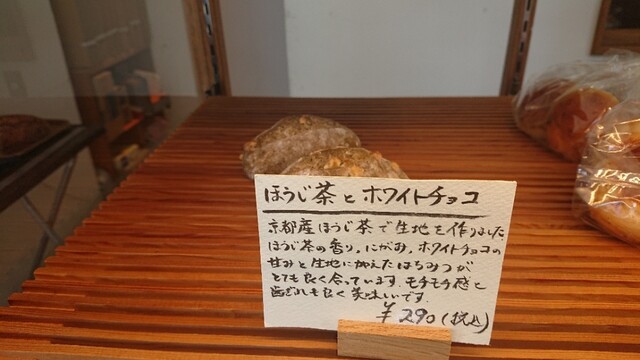 ほうじ茶とホワイトチョコ
京都産ほうじ茶で生地を作りました。
ほうじ茶の香り、にがみ、ホワイトチョコの
甘みと生地に加えたはちみつが
とても良く合っています。モチモチ感と
歯ざわりも良く美味しいです。
¥290(税込)